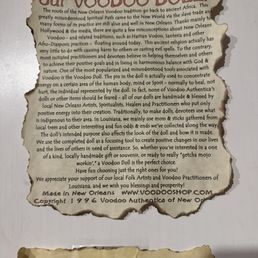 our VOODOO DOLLS
The roots of the New Orleans Voodoo tradition go back to ancient Africa. This
greatly misunderstood Spiritual Path came to the New World via the slave trade and
many forms of its practice are still alive and well in New Orleans. Thanks mainly to
Hollywood & the media, there are quite a few misconceptions about New Orleans
Voodoo - and related traditions, such as Haitian Vodou, Santeria and other
Afro-Diasporic practices - floating around today. This ancient religion actually has
very little to do with causing harm to others or casting evil spells. To the contrary,
most initiated practitioners and devotees believe in helping themselves and others
to achieve their positive goals and in living in harmonious balance with God &
nature. One of the most popularized and misunderstood tools associated with
Voodoo is the Voodoo Doll. The pin in the doll is actually used to concentrate
energy on a certain area of the human body, mind or spirit - normally to heal, not
hurt, the individual represented by the doll. In fact, none of Voodoo Authentica's
dolls or other items should be feared - all of our dolls are handmade & blessed by
local New Orleans Artists, Spiritualists, Healers and Practitioners who put only
positive energy into their creation. Traditionally, to make dolls, devotees use what
is indigenous to their area. In Louisiana, we mainly use moss & sticks gathered from
local trees and other interesting and fun odds & ends we've collected along the way.
The doll's intended purpose also affects the look of the doll and how it is made.
We use the completed doll as a focusing tool to create positive changes in our lives
and the lives of others in need of assistance. So, whether you're interested in a one
of a kind, locally handmade gift or souvenir, or ready to really "gotcha mojo
workin'," a Voodoo Doll is the perfect choice.
Have fun choosing just the right ones for you!
We appreciate your support of our local Folk Artists and Voodoo Practitioners of
Louisiana, and we wish you blessings and prosperity!
Made in New Orleans WWW.VOODOOSHOP.COM
Copyright 1996 Voodoo Authentica of New Orleans